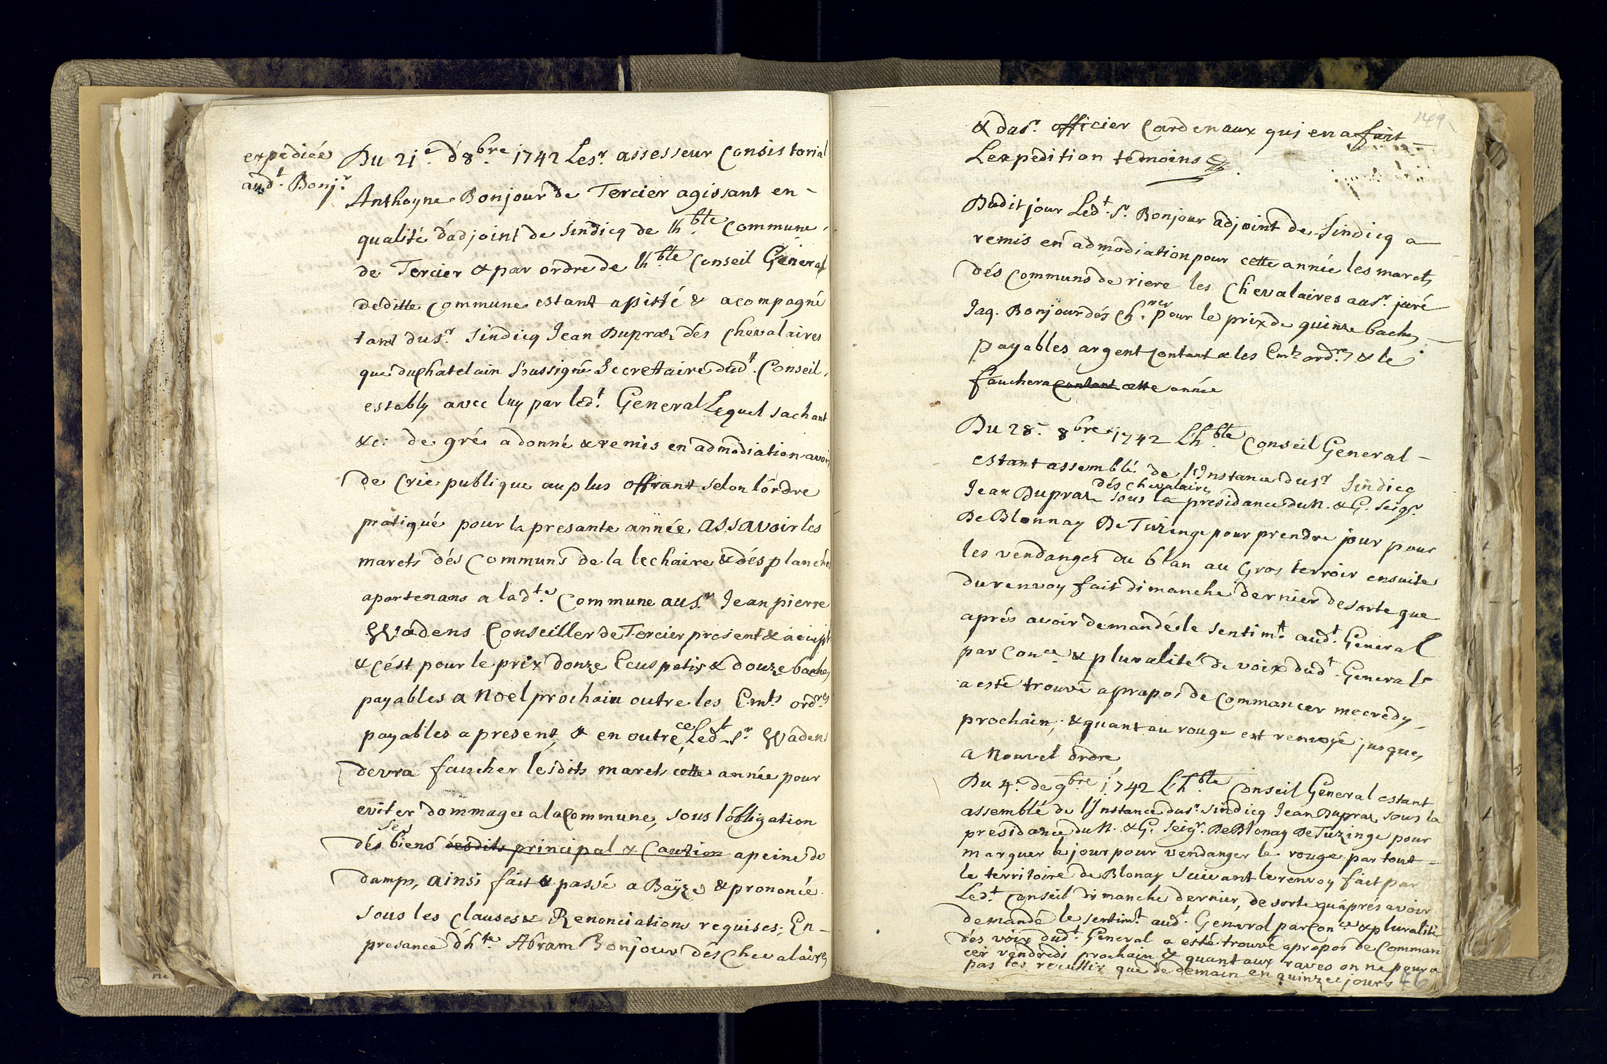 expediée
aud.t Bonj.r
Du 21.e d'8bre 1742 Le s.r assesseur Consistorial
Anthoyne Bonjour de Tercier agissant en
qualité d'adjoint de Sindicq de l'h.ble Commune
de Tercier & par ordre de l'h.ble Conseil General
de ditte Commune estant assisté & acompagné
tant du s.r Sindicq Jean Dupraz dés Chevalaires
que du Chatelain soussigné Secrettaire dud.t Conseil
estably avec luy par led.t General Lequel sachant
&c: de gré a donné & remis en admodiation
de Crie publique au plus offrant selon l'ordre
pratiqué pour la presante année assavoir les
marets dés Communs de la Lechaire & dés planches
apartenans a lad.te Commune au s.r Jean pierre
Wadens Conseiller de Tercier present & acept
& c'ést pour le prix d'onze Ecus petis & douze baches
payables a Noel prochain outre les Em.ts ord.res
payables a present, & en outre ce Led.t s.r Wadens
devra faucher lesdits marets cette année pour
eviter dommage a la Commune, sous l'obligation
dés ses biens désdits principal & Caution a peine de
damps, ainsi fait & passé a Bayze & prononcé
sous les clauses & Renonciations requises; En
presance d'h.te Abram Bonjour dés Chevalaires
149
& du s.r officier Cardenaux qui en a fait
L'expedition temoins
Dudit jour Led.t s.r Bonjour adjoint de Sindicq a
remis en admodiation pour cette année les marets
dés Communs de riere les Chevalaires au s.r juré
Jaq. Bonjour dés Ch.res pour le prix de quinze baches
payables argent contant & les Em.ts ord.res & le
fauchera contant cette année
Du 28.e 8bre 1742 L'h.ble Conseil General
estant assemblé de l'Instance du s.r Sindicq
dés Chevalaires
Jean Dupraz sous la présidance du N. & G. Seig.r
De Blonnay De Tuzinge pour prendre jour pour
les vendanges du blan au Gros terroir ensuite
du renvoy fait dimanche dernier de sorte que
aprés avoir demandé le sentim.t aud.t General
par Con.ce & pluralité de voix dud.t General
a esté trouvé a propos de Commancer mecredy
prochain, & quant au rouge est renvoyé jusque,
a Nouvel ordre
Du 4.e de 9bre 1742 L'h.ble Conseil General estant
assemblé de l'Instance du s.r Sindicq Jean Dupraz sous la
presidance du N. & G. Seig.r De Blonay De Tuzinge pour
marquer le jour pour vendanger le rouge par tout
le territoire de Blonay suivant le renvoy fait par
Led.t Conseil dimanche dernier, de sorte qu'aprés avoir
demandé le sentim.t aud.t General par Con.ce & pluralité
dés voix dud.t General a esté trouvé a propos de Comman
cer vendredi prochain & quant aux raves on ne poura
pas les recullir que de demain en quinze jours